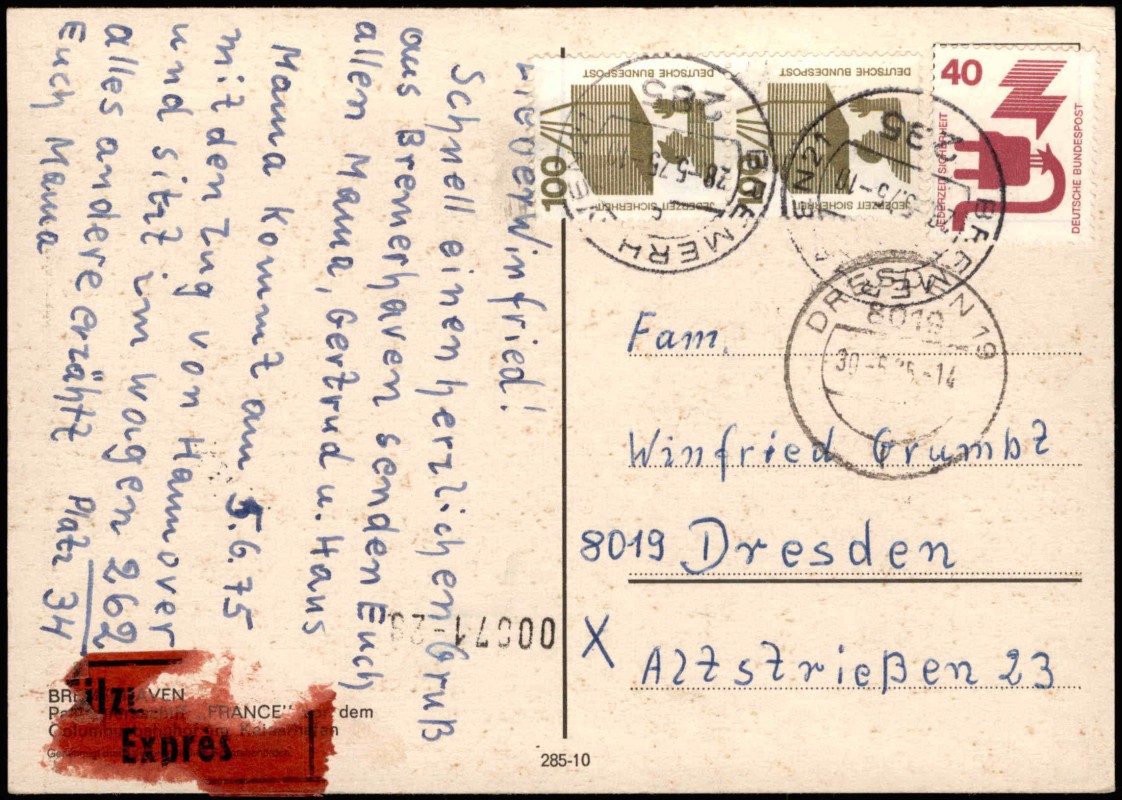 Lieber Winfried!
Schnell einen herzlichen Gruß
aus Bremerhaven senden Euch
allen Mama, Gertrud u. Hans
Mama kommt am 5.6.75
mit dem Zug von Hannover
und sitzt im wagen 262
alles andere erzählt Platz 34
Euch Mama
100
DEUTSCHE BUNDESPOST
JEDERZEIT SICHERHEIT
DEUTSCHE BUNDESPOST
JEDERZEIT SICHERHEIT
40
JEDERZEIT SICHERHEIT
DEUTSCHE BUNDESPOST
285
28.-5.75
BREMERH
DRESDEN 19
8019
30.-5.75.-14
Fam.
Winfried Grumbt
8019 Dresden
X Altstrießen 23
"FRANCE"
dem
Expres
285-10